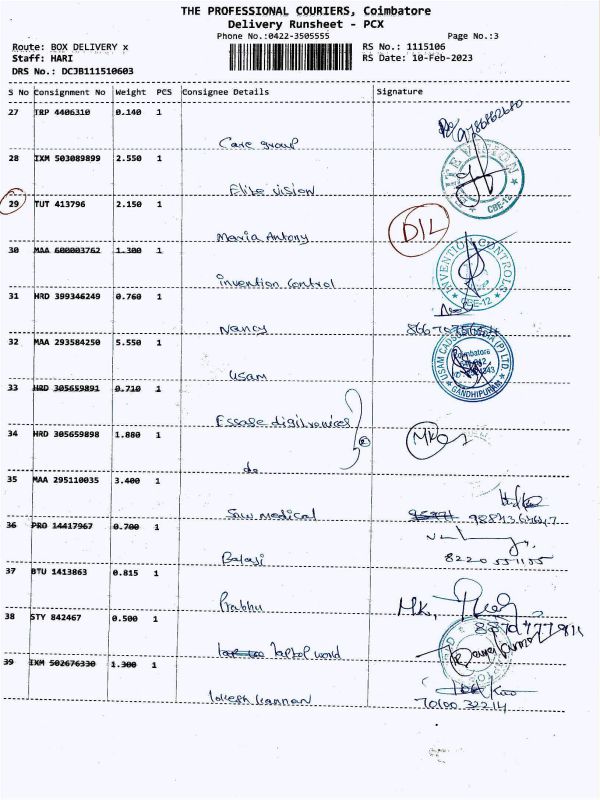 THE PROFESSIONAL COURIERS, Coimbatore
Delivery Runsheet - PCX
Phone No.:0422-3505555 Page No.:3
Route: BOX DELIVERY x RS No.: 1115106
Staff: HARI RS Date: 10-Feb-2023
DRS No.: DCJB111510603
S No Consignment No Weight PCS Consignee Details Signature
27 TRP 4406310 0.140 1
Care group
28 IXM 503089899 2.550 1
Elite vision
CBE-12
29 TUT 413796 2.150 1
Maria Antony
D/L
30 MAA 600003762 1.300 1
invention Control
INVENTION CONTROLS
CBE-12
31 HRD 399346249 0.760 1
Nancy
32 MAA 293584250 5.550 1
Usam
GANDHIPURAM
33 HRD 305659891 0.710 1
34 HRD 305659898 1.880 1
do
35 MAA 295110035 3.400 1
Saw medical
36 PRO 14417967 0.700 1
Balaji
37 BTU 1413863 0.815 1
Prabhu MK,
38 STY 842467 0.500 1
laptop world
39 IXM 502676330 1.300 1
lokesh kannan